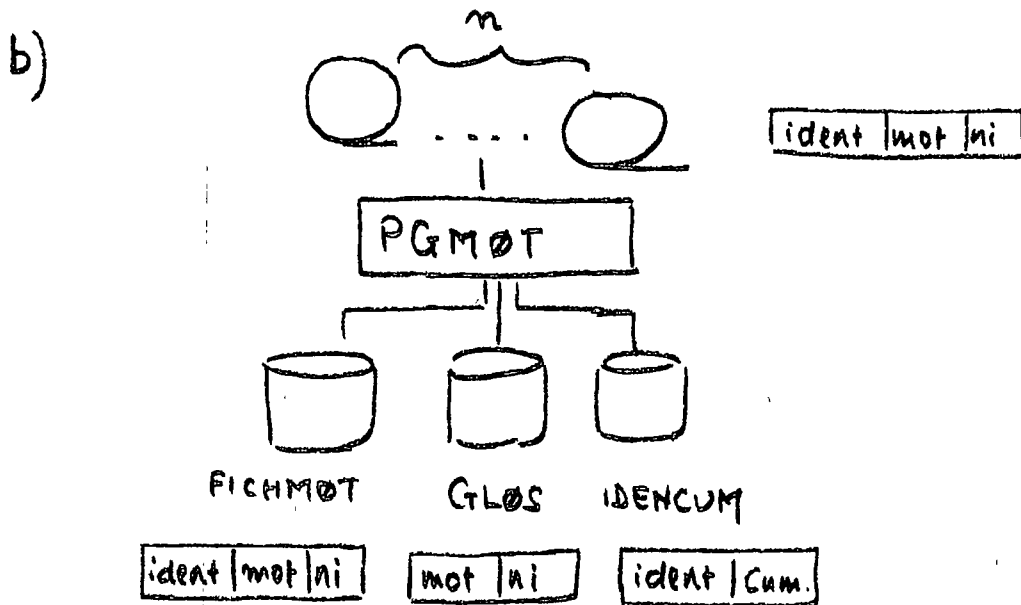 b)
n
ident | mot | ni
PGMØT
FICHMØT GLØS IDENCUM
ident | mot | ni mot | ni ident | Cum.